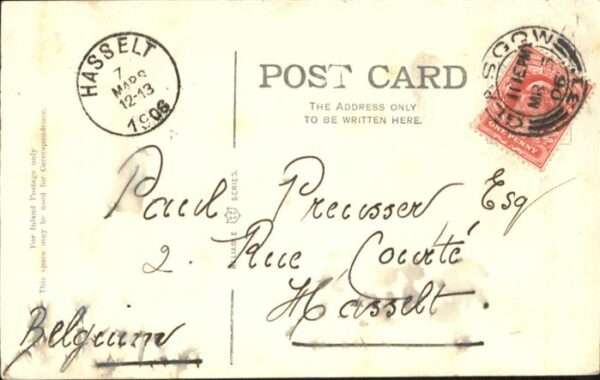 HASSELT
7
MARS
12-13
1908
POST CARD
THE ADDRESS ONLY
TO BE WRITTEN HERE.
GLASGOW
11 15 PM
MR 5
08
ONE PENNY
For Inland Postage only
This space may be used for Correspondence.
RELIABLE SERIES.
Paul Preusser Esq
2. Rue Courté
Hasselt.
Belgium